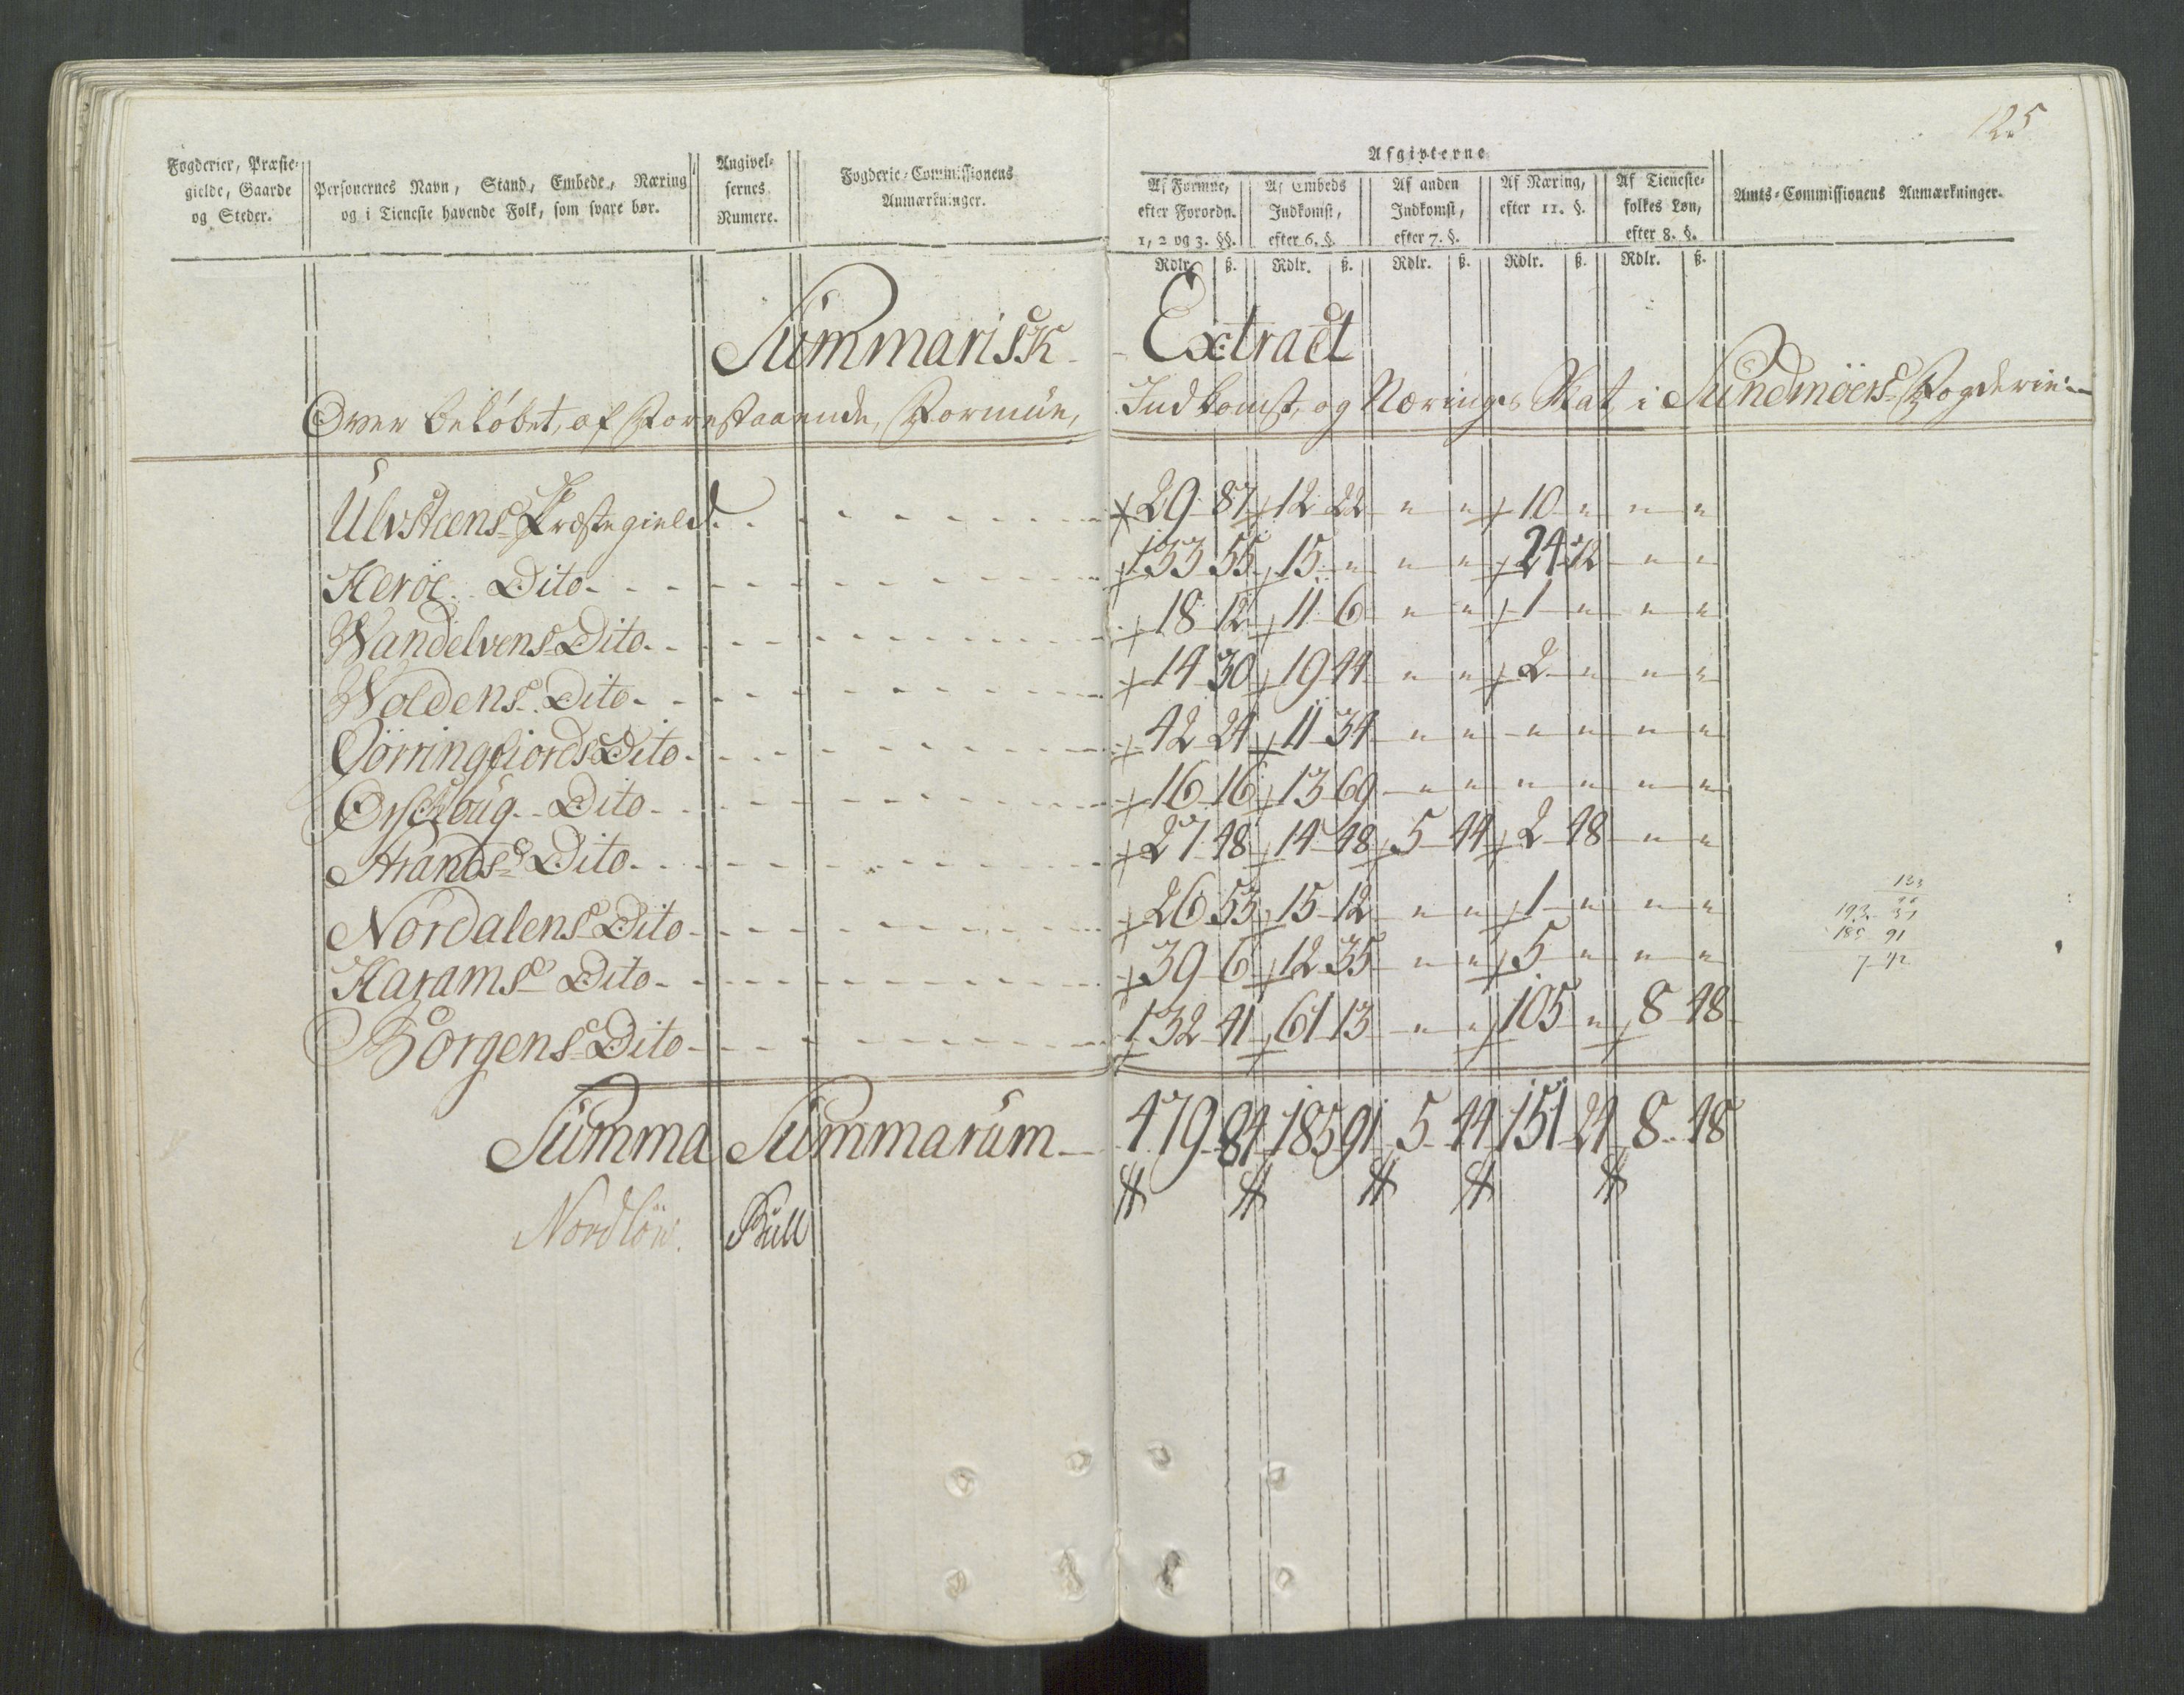 125
Fogderier, Præste-
gielde, Gaarde
og Steder.
Personernes Navn, Stand, Embede, Næring
og i Tieneste havende Folk, som svare bør.
Angivel-
sernes
Numere.
Fogderie-Commissionens
Anmærkninger.
Afgivterne
Af Formue,
efter Forordn.
1, 2 og 3. §§.
Af Embeds
Indkomst,
efter 6. §.
Af anden
Indkomst,
efter 7. §.
Af Næring,
efter 11. §.
Af Tieneste-
folkes Løn,
efter 8. §.
Amts-Commissionens Anmærkninger.
Rdlr. ß. Rdlr. ß. Rdlr. ß. Rdlr. ß. Rdlr. ß.
Summarisk Extract
Over beløbet, af Forestaaende, Formüe, Indkomst, og Nærings Skat, i Sundmöers Fogderie
Ulvsteens Præstegield 29 87 12 22 " " 10 " " "
Heröe Dito 133 55 15 " " " 24 72 " "
Wandelvens Dito 18 12 11 6 " " 1 " " "
Woldens Dito 14 30 19 44 " " 2 " " "
Jörringfiords Dito 42 24 11 34 " " " " " "
Ørschoug Dito 16 16 13 69 " " " " " "
Strands Dito 27 48 14 48 5 44 2 48 " "
Nordalens Dito 26 53 15 12 " " 1 " " "
Harams Dito 39 6 12 35 " " 5 " " "
Borgens Dito 132 41 61 13 " " 105 " 8 48
Summa Summarum 479 84 185 91 5 44 151 24 8 48
Nordlöw. Bull
133
193 37
185 91
7 42